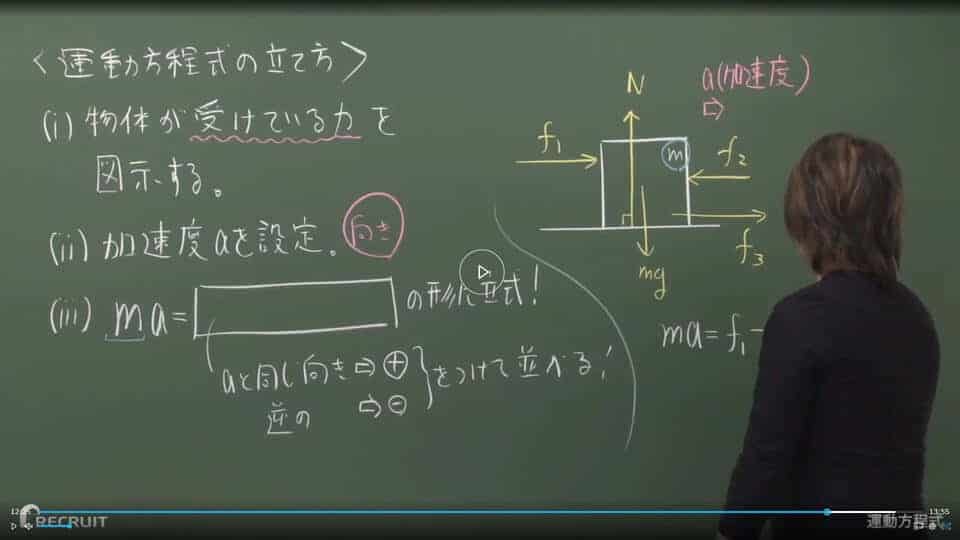 〈運動方程式の立て方〉
(i) 物体が受けている力を
図示する。
(ii) 加速度aを設定。 向き
(iii) ma= の形に立式!
aと同じ向き⇨⊕
逆の ⇨⊖
をつけて並べる!
N
a(加速度)
⇨
f₁
m
f₂
f₃
mg
ma=f₁-
RECRUIT
運動方程式
13:55